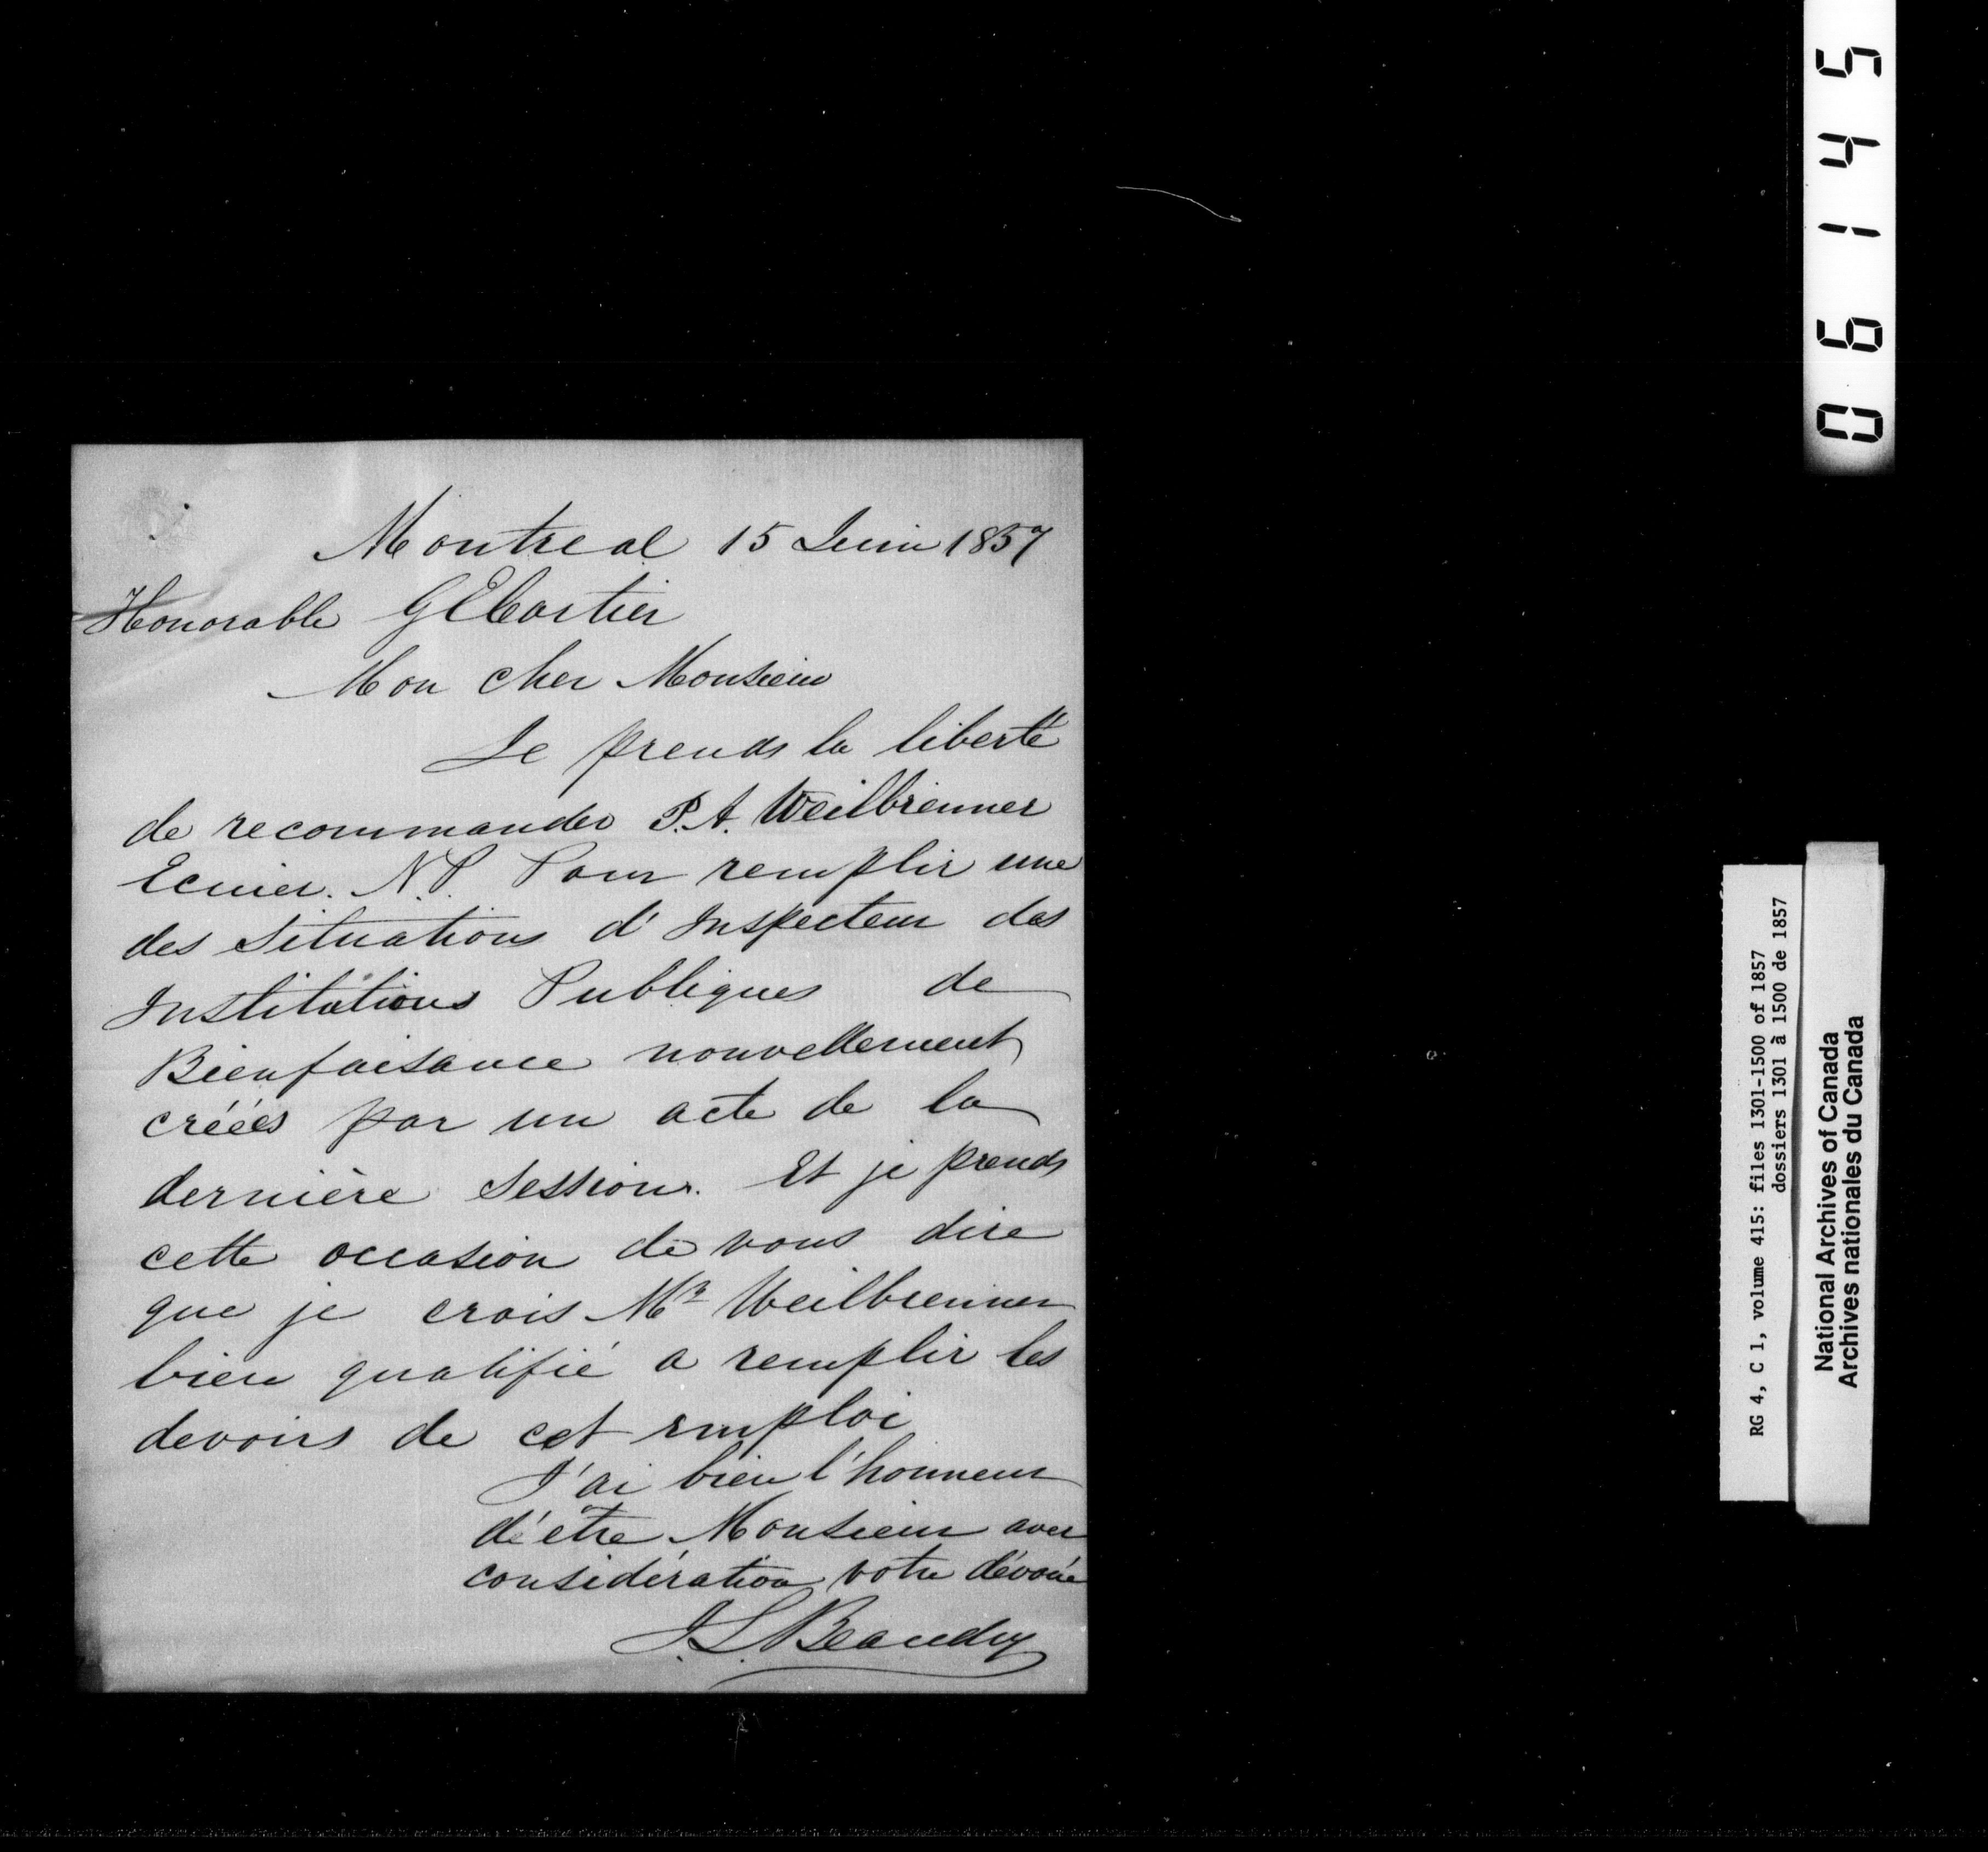 Montreal 15 Juin 1857
Honorable G E Cartier
Mon cher Monsieur
Je prends la liberté
de recommander P. A. Weilbrenner
Ecuier. N. P. Pour remplir une
des Situations d'Inspecteur des
Institutions Publiques de
Bienfaisance nouvellement
créées par un acte de la
dernière Session. Et je prends
cette occasion de vous dire
que je crois Mr Weilbrenner
bien qualifié a remplir les
devoirs de cet emploi
J'ai bien l'honneur
d'être Monsieur avec
considération votre dévoué
J. L. Beaudry
06145
RG 4, C 1, volume 415: files 1301-1500 of 1857
dossiers 1301 à 1500 de 1857
National Archives of Canada
Archives nationales du Canada